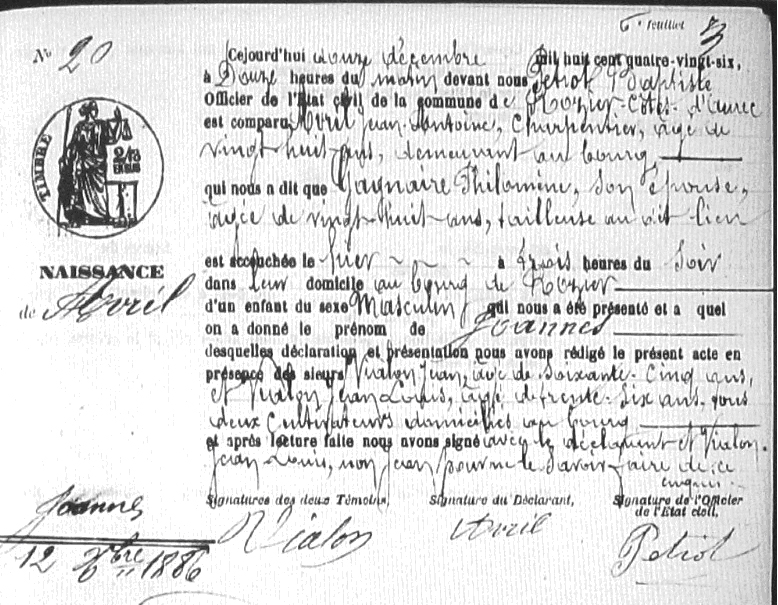 6e feuillet 3
No 20
Cejourd'hui douze décembre mil huit cent quatre-vingt-six,
à Douze heures du matin devant nous Petiot Baptiste
Officier de l'Etat civil de la commune de Rozier-Côtes-d'Aurec
est comparu Avril Jean-Antoine, Charpentier, âgé de
vingt huit ans, demeurant au bourg,
TIMBRE
qui nous a dit que Gagnaire Philomène, son épouse,
âgée de vingt-huit-ans, tailleuse au dit lieu
est accouchée le hier à trois heures du Soir
NAISSANCE
dans leur domicile au bourg de Rozier
de Avril
d'un enfant du sexe Masculin qui nous a été présenté et a quel
on a donné le prénom de Joannes
desquelles déclaration et présentation nous avons rédigé le présent acte en
présence des sieurs Vialon Jean, âgé de Soixante-Cinq ans,
et Vialon Jean Louis, âgé de trente-Six ans, tous
deux Cultivateurs domiciliés au bourg
et après lecture faite nous avons signé avec le déclarant et Vialon
Jean Louis, non Jean pour ne le Savoir faire de ce
enquis.
Signatures des deux Témoins, Signature du Déclarant, Signature de l'Officier
de l'Etat civil.
Joannes
Vialon Avril Petiot
12 Xbre 1886